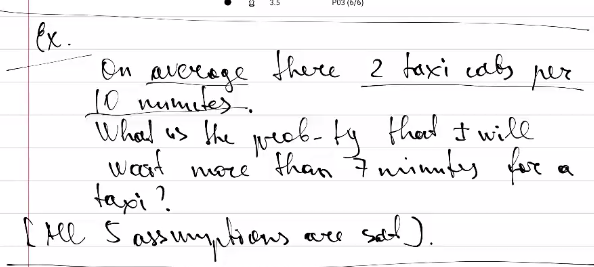 3.5 P03 (6/6)
Ex.
On average there 2 taxi cabs per
10 minutes.
What is the prob-ty that I will
wait more than 7 minutes for a
taxi?
[All 5 assumptions are sat].